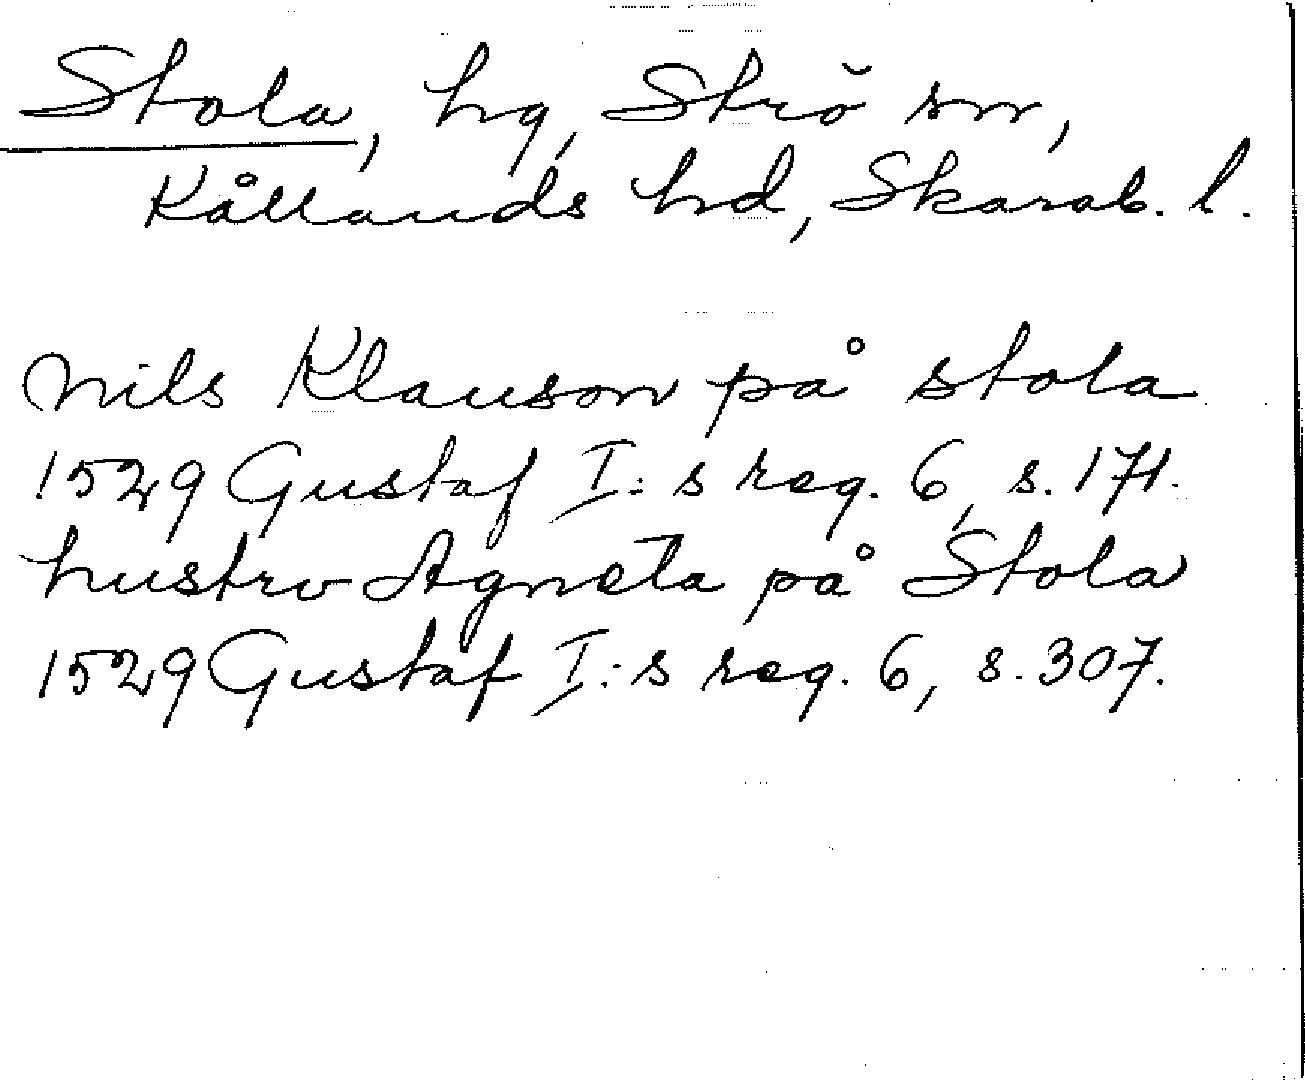 Stola, hg, Strö sn,
Kållands hd, Skarab. l.
Nils Klauson på stola
1529 Gustaf I:s reg. 6, s. 171.
hustro Agneta på Stola
1529 Gustaf I:s reg. 6, s. 307.